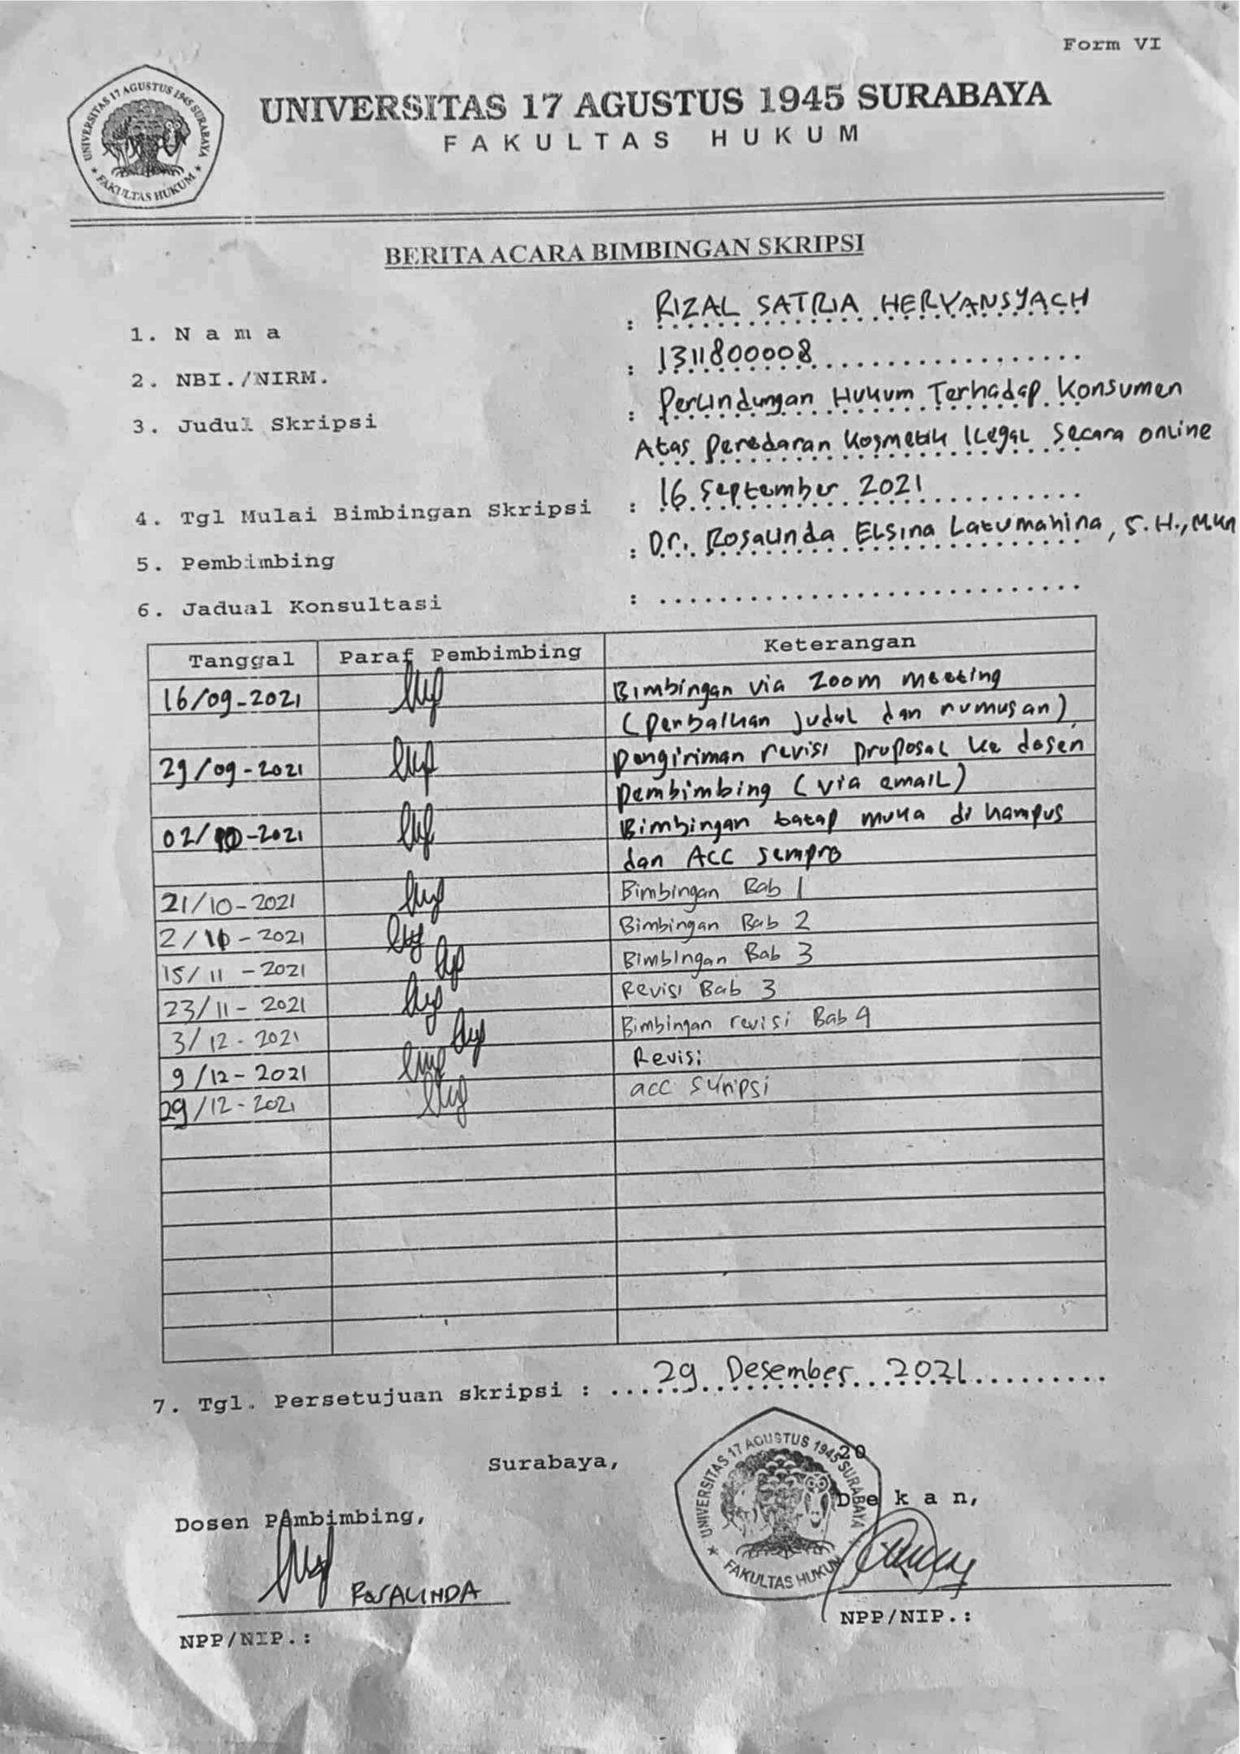 Form VI
UNIVERSITAS 17 AGUSTUS 1945 SURABAYA
FAKULTAS HUKUM
UNIVERSITAS 17 AGUSTUS 1945 SURABAYA
FAKULTAS HUKUM
BERITA ACARA BIMBINGAN SKRIPSI
1. N a m a : RIZAL SATRIA HERYANSYACH
2. NBI./NIRM. : 1311800008
3. Judul Skripsi : Perlindungan Hukum Terhadap Konsumen
Atas Peredaran Kosmetik Ilegal Secara online
4. Tgl Mulai Bimbingan Skripsi : 16 September 2021
5. Pembimbing : Dr. Rosalinda Elsina Latumahina, S.H., M.Kn
6. Jadual Konsultasi :
Tanggal Paraf Pembimbing Keterangan
16/09-2021 Bimbingan via Zoom meeting
(perbaikan judul dan rumusan)
29/09-2021 pengiriman revisi proposal ke dosen
pembimbing (via email)
02/10-2021 Bimbingan tatap muka di kampus
dan ACC sempro
21/10-2021 Bimbingan Bab 1
2/ - 2021 Bimbingan Bab 2
15/11 - 2021 Bimbingan Bab 3
23/11 - 2021 Revisi Bab 3
3/12 - 2021 Bimbingan revisi Bab 4
9/12 - 2021 Revisi
29/12 - 2021 acc skripsi
7. Tgl. Persetujuan skripsi : 29 Desember 2021
Surabaya, 20
UNIVERSITAS 17 AGUSTUS 1945 SURABAYA
FAKULTAS HUKUM
Dosen Pembimbing, D e k a n,
ROSALINDA
NPP/NIP.: NPP/NIP.: